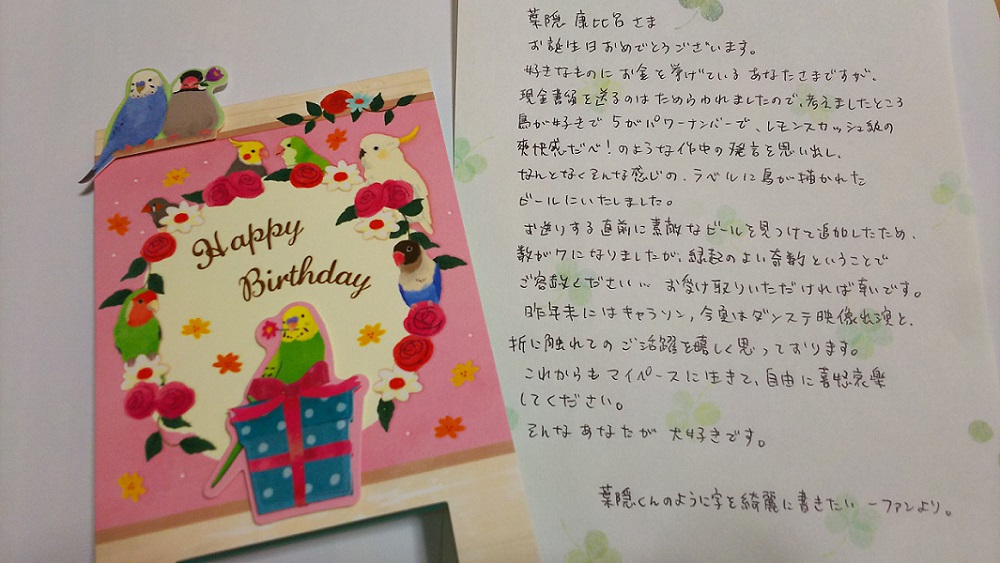 Happy
Birthday
葉隠 康比呂さま
お誕生日おめでとうございます。
好きなものにお金を挙げている あなたさまですが、
現金書留を送るのはためらわれましたので、考えましたところ
鳥が好きで 5がパワーナンバーで、レモンスカッシュ級の
爽快感だべ!のような作中の発言を思い出し、
なんとなくそんな感じの、ラベルに鳥が描かれた
ビールにいたしました。
お送りする直前に素敵なビールを見つけて追加したため、
数が7になりましたが、縁起のよい奇数ということで
ご容赦ください… お受け取りいただければ幸いです。
昨年末にはキャラソン、今夏はダンステ映像出演と、
折に触れてのご活躍を嬉しく思っております。
これからもマイペースに生きて、自由に喜怒哀樂
してください。
そんなあなたが大好きです。
葉隠くんのように字を綺麗に書きたい一ファンより。